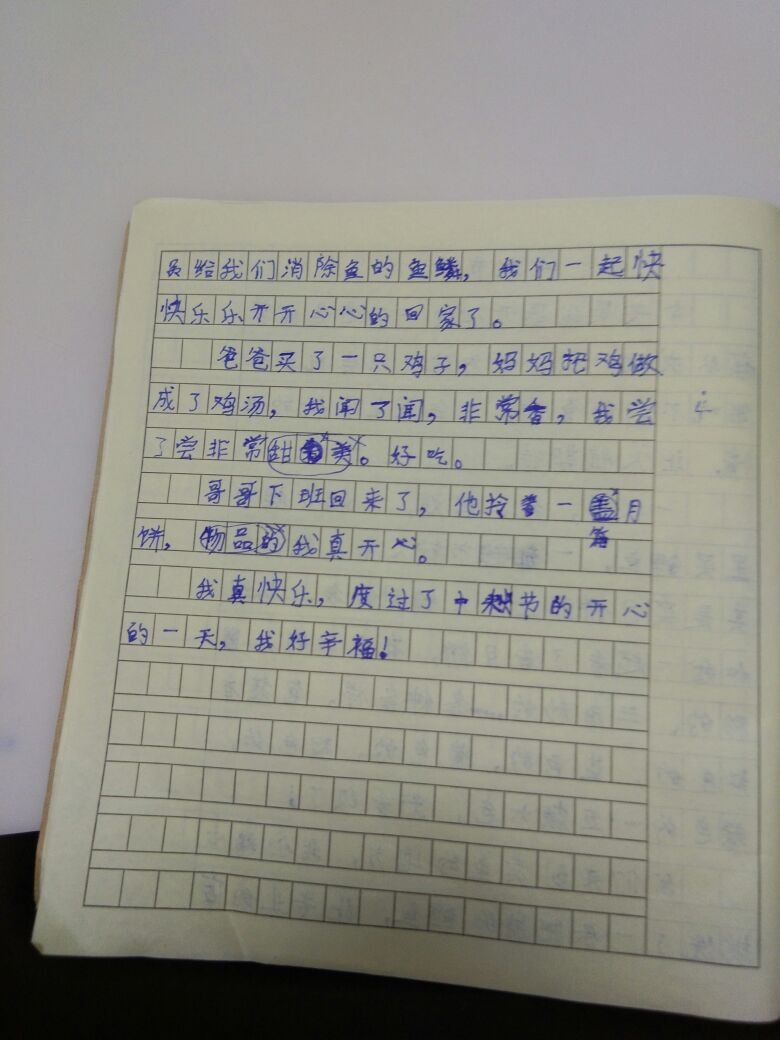 给我们消除鱼的鱼鳞，我们一起快
快乐乐开开心心的回家了。
爸爸买了一只鸡子，妈妈把鸡做
成了鸡汤，我闻了闻，非常香，我尝
了尝非常甜美。好吃。
哥哥下班回来了，他拎着一盒月
饼，物品的我真开心。
我真快乐，度过了中秋节的开心
的一天，我好辛福！